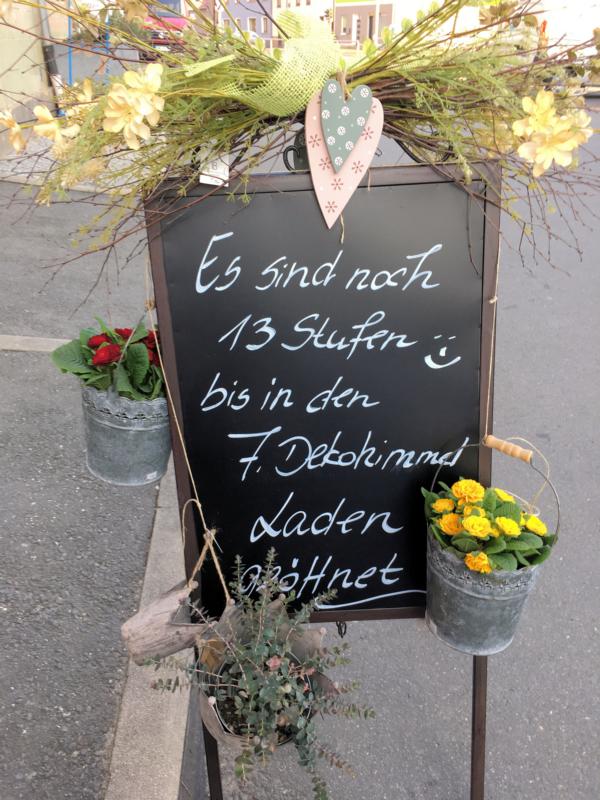 Es sind noch
13 Stufen
bis in den
7. Dekohimmel
Laden
geöffnet